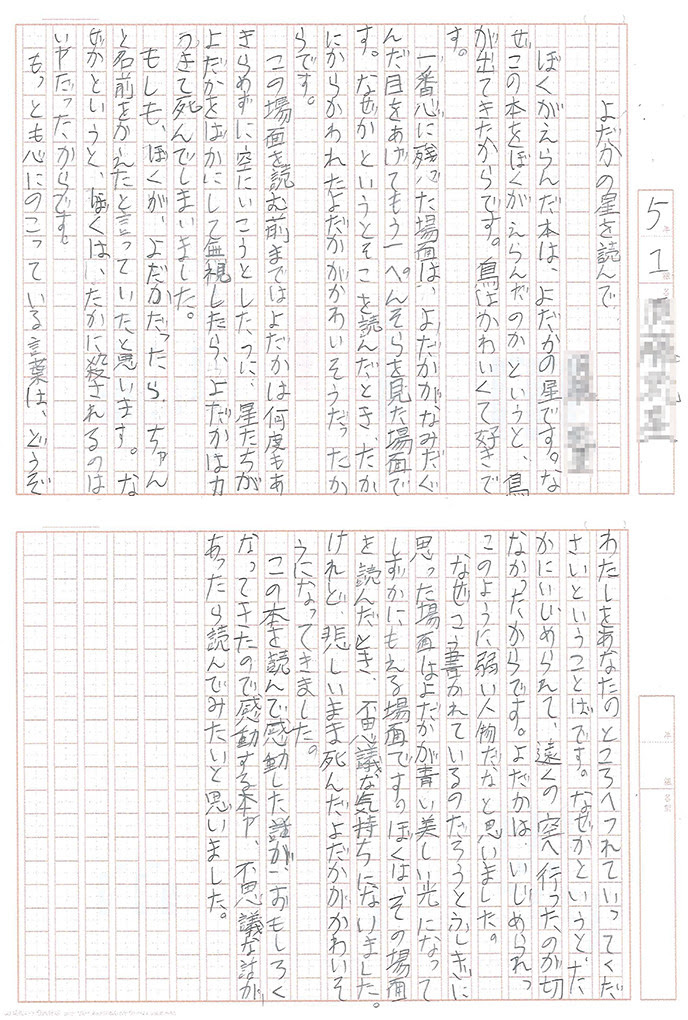 5年1組
よだかの星を読んで
ぼくがえらんだ本は、よだかの星です。な
ぜこの本をぼくがえらんだのかというと、鳥
が出てきたからです。鳥はかわいくて好きで
す。
一番心に残った場面は、よだかがなみだぐ
んだ目をあげてもう一ぺんそらを見た場面で
す。なぜかというとそこを読んだとき、たか
にからかわれたよだかがかわいそうだったか
らです。
この場面を読む前まではよだかは何度もあ
きらめずに空にいこうとしたのに、星たちが
よだかをばかにして無視したら、よだかは力
つきて死んでしまいました。
もしも、ぼくが、よだかだったら、ちゃん
と名前をかえたと言っていたと思います。な
ぜかというと、ぼくは、たかに殺されるのは
いやだったからです。
もっとも心にのこっている言葉は、どうぞ
わたしをあなたのところへつれていってくだ
さいということばです。なぜかというと、た
かにいじめられて、遠くの空へ行ったのが切
なかったからです。よだかは、いじめられっ
このように弱い人物だなと思いました。
なぜこう書かれているのだろうとふしぎに
思った場面はよだかが青い美しい光になって
しずかにもえる場面です。ぼくは、その場面
を読んだとき、不思議な気持ちになりました。
けれど、悲しいまま死んだよだかがかわいそ
うになってきました。
この本を読んで感動した話が、おもしろく
なってきたので感動する本や、不思議な話が
あったら読んでみたいと思いました。
年
組